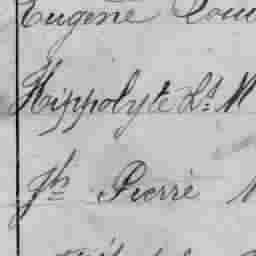 Eugène Loui
Hippolyte Ls. M
Jh Pierre